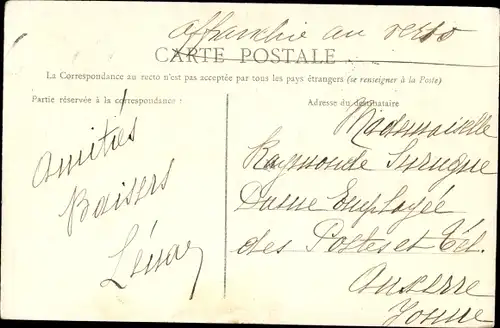 affranchie au recto
CARTE POSTALE
La Correspondance au recto n'est pas acceptée par tous les pays étrangers (se renseigner à la Poste)
Partie réservée à la correspondance
Adresse du destinataire
Amitiés
Baisers
Mademoiselle
Raymonde Surugue
Dame Employée
des Postes et Tél.
Auxerre
Yonne